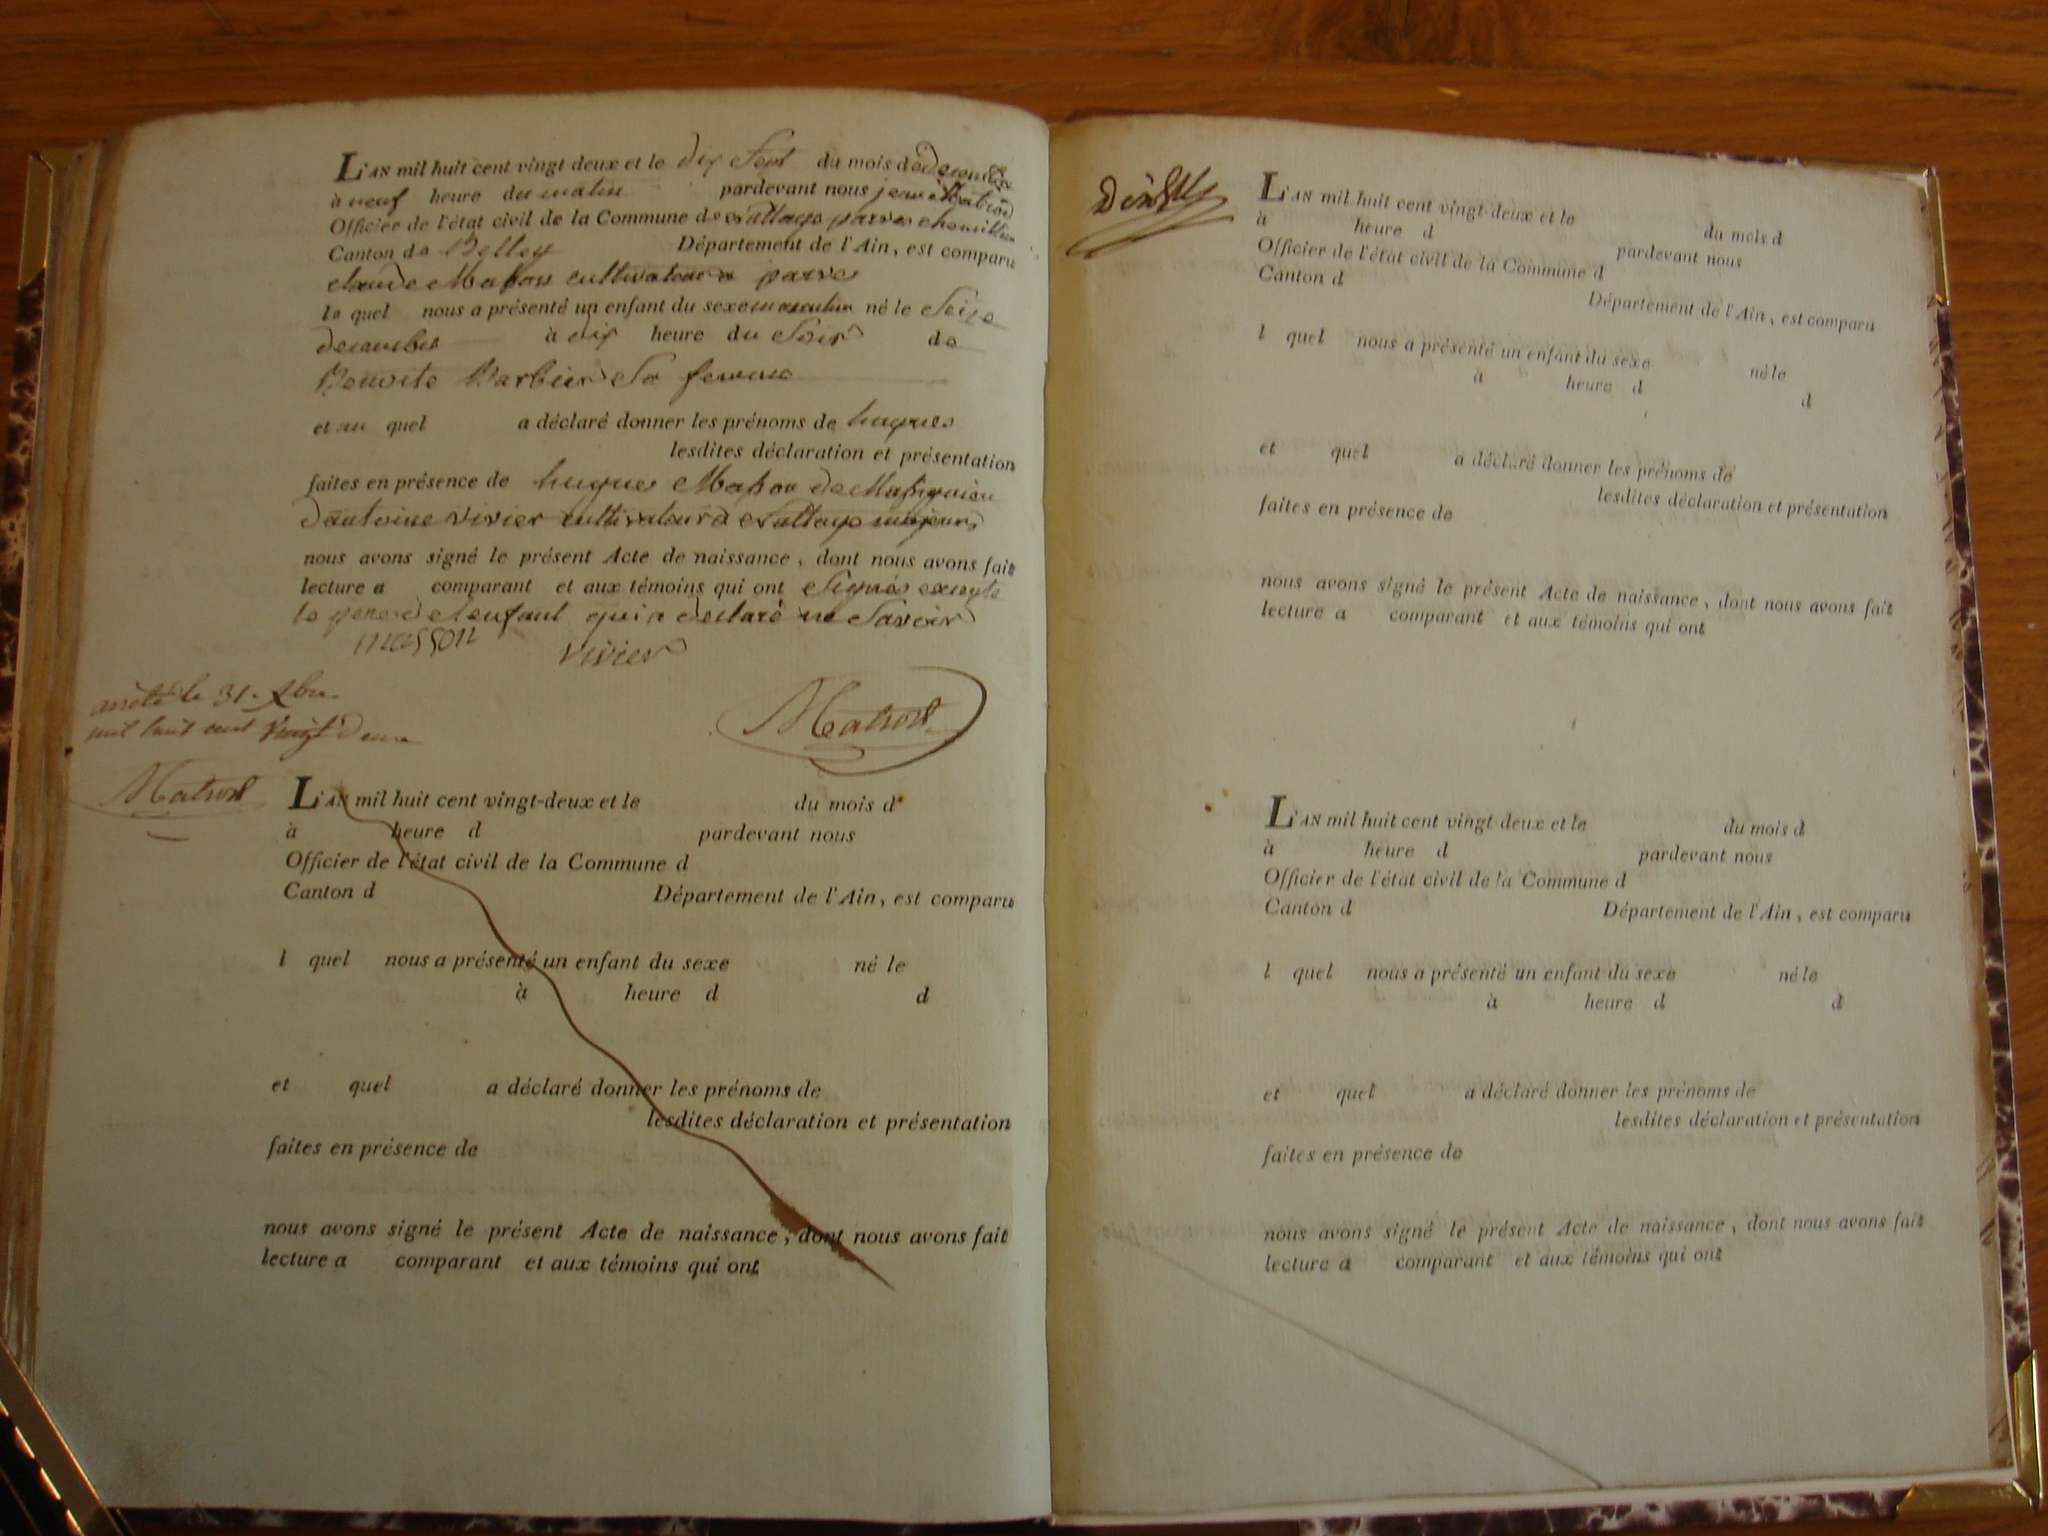 L'AN mil huit cent vingt-deux et le dix Sept du mois de Decembre
à neuf heure du matin pardevant nous jean
Officier de l'état civil de la Commune de parves
Canton de Belley Département de l'Ain, est comparu
claude cultivateur a parves
le quel nous a présenté un enfant du sexe masculin né le Seize
decembre à dix heure du Soir de
Benoite Barbier Sa femme
et au quel a déclaré donner les prénoms de hugues
lesdites déclaration et présentation
faites en présence de hugues de
d'antoine vivier cultivateur a majeurs
nous avons signé le présent Acte de naissance, dont nous avons fait
lecture a comparant et aux témoins qui ont Signés excepte
le pere de lenfant qui a declaré ne Savoir
masson vivier
arrêté le 31. Xbre
mil huit cent vingt Deux
L'AN mil huit cent vingt-deux et le du mois d
à heure d pardevant nous
Officier de l'état civil de la Commune d
Canton d Département de l'Ain, est comparu
l quel nous a présenté un enfant du sexe né le
à heure d d
et quel a déclaré donner les prénoms de
lesdites déclaration et présentation
faites en présence de
nous avons signé le présent Acte de naissance, dont nous avons fait
lecture a comparant et aux témoins qui ont
L'AN mil huit cent vingt-deux et le du mois d
à heure d pardevant nous
Officier de l'état civil de la Commune d
Canton d Département de l'Ain, est comparu
l quel nous a présenté un enfant du sexe né le
à heure d d
et quel a déclaré donner les prénoms de
lesdites déclaration et présentation
faites en présence de
nous avons signé le présent Acte de naissance, dont nous avons fait
lecture a comparant et aux témoins qui ont
L'AN mil huit cent vingt-deux et le du mois d
à heure d pardevant nous
Officier de l'état civil de la Commune d
Canton d Département de l'Ain, est comparu
l quel nous a présenté un enfant du sexe né le
à heure d d
et quel a déclaré donner les prénoms de
lesdites déclaration et présentation
faites en présence de
nous avons signé le présent Acte de naissance, dont nous avons fait
lecture a comparant et aux témoins qui ont